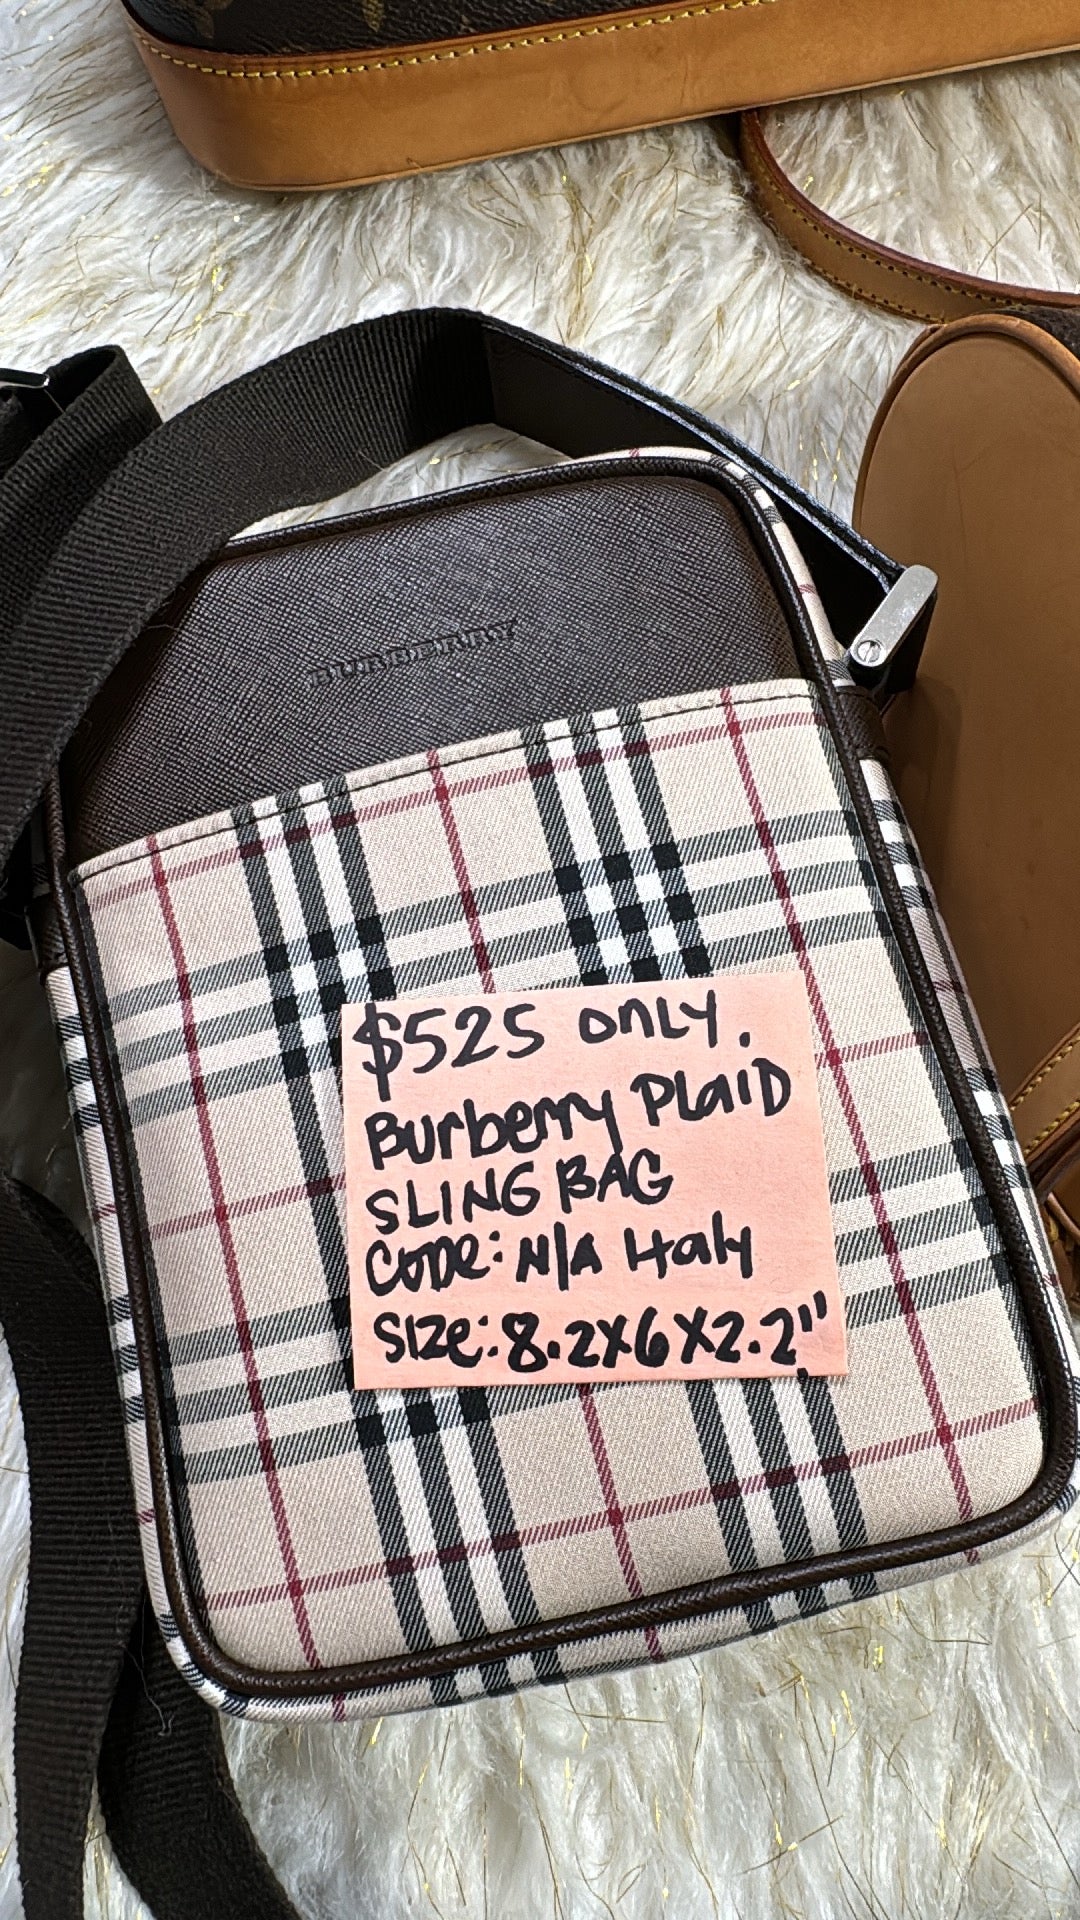 BURBERRY
$525 only.
Burberry PLaiD
SLING BAG
CODE: N/A Italy
SIZE: 8.2X6X2.2"